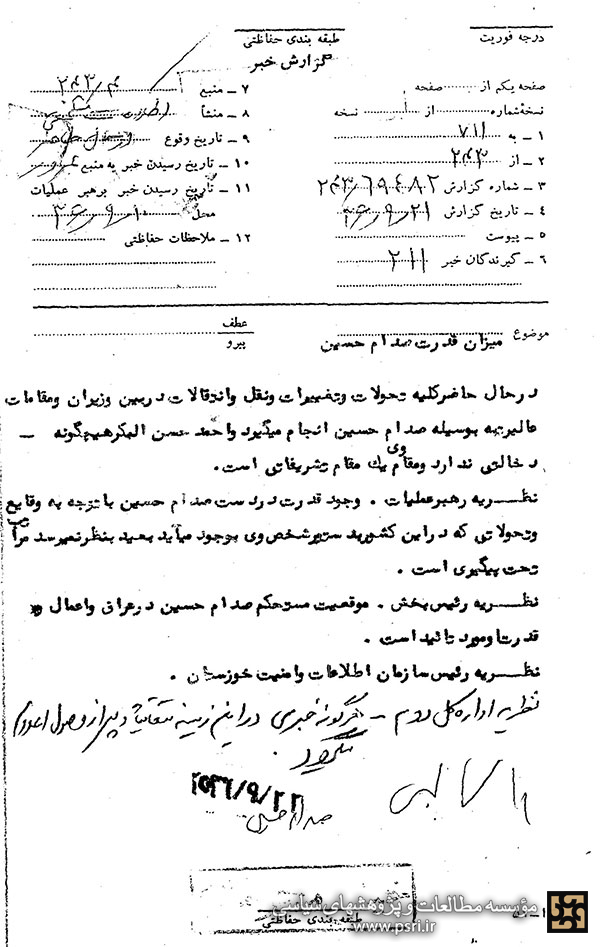 درجه فوریت
طبقه بندی حفاظتی
گزارش خبر
صفحه یکم از صفحه
نسخه شماره از نسخه
۱ ـ به ۷۱۱
۲ ـ از ۲۴۳
۳ ـ شماره گزارش ۲۴۳/۶۹۴۸۲
۴ ـ تاریخ گزارش ۳۶/۹/۲۱
۵ ـ پیوست
۶ ـ گیرندگان خبر ۲۱۱
۷ ـ منبع
۸ ـ منشأ
۹ ـ تاریخ وقوع
۱۰ ـ تاریخ رسیدن خبر به منبع
۱۱ ـ تاریخ رسیدن خبر برهبر عملیات
محل ۳۶/۹/۱۰
۱۲ ـ ملاحظات حفاظتی
موضوع میزان قدرت صدام حسین
عطف
پیرو
درحال حاضرکلیه تحولات وتغییرات ونقل وانتقالات دربین وزیران ومقامات
عالیرتبه بوسیله صدام حسین انجام میگیرد واحمد حسن البکرهیچگونه ـ
دخالتی ندارد ومقام وی یک مقام تشریفاتی است.
نظـــریه رهبرعملیات . وجود قدرت دردست صدام حسین با توجه به وقایع
وتحولاتی که دراین کشوربدستورشخص وی بوجود میآید بعید بنظرنمیرسد مراتب
تحت پیگیری است .
نظـــریه رئیس بخش . موقعیت مستحکم صدام حسین درعراق واعمال
قدرت اومورد تائید است .
نظـــریه رئیس سازمان اطلاعات وامنیت خوزستان .
نظریه اداره کل دوم ـ هرگونه خبری در این زمینه متعاقباً و پس از وصول اعلام
میگردد .
۲۵۳۶/۹/۲۲
صدام حسین
طبقه بندی حفاظتی
مؤسسه مطالعات و پژوهشهای سیاسی
www.psri.ir